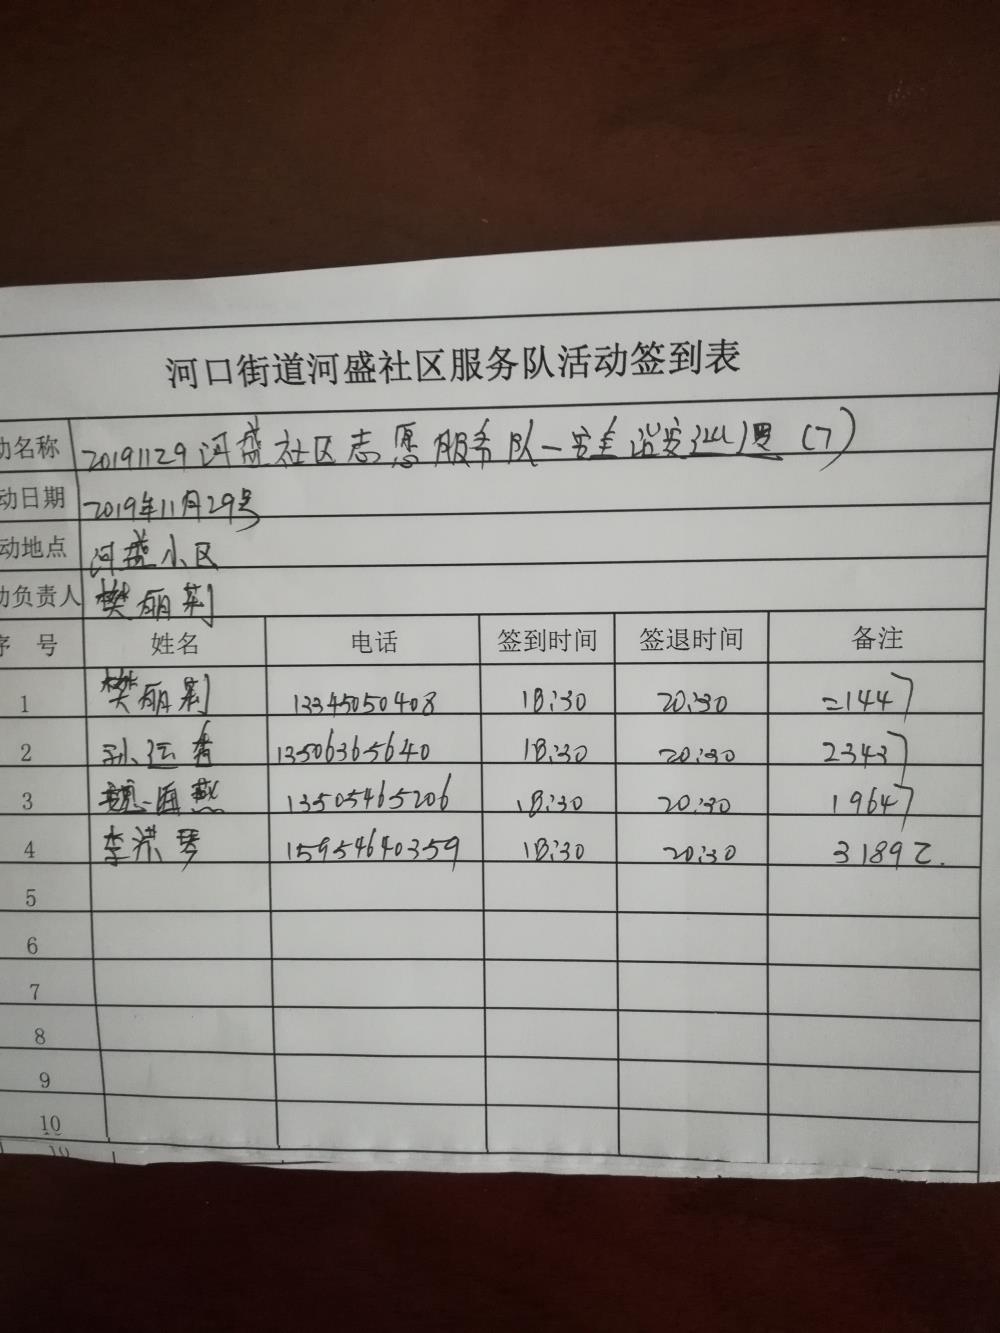 河口街道河盛社区服务队活动签到表
动名称 20191129河盛社区志愿服务队一安全 (7)
动日期 2019年11月29号
动地点 河盛小区
动负责人 樊丽利
序号 姓名 电话 签到时间 签退时间 备注
1 樊丽利 13345050408 18:30 20:30 =1447
2 孙运香 13506365640 18:30 20:30 23437
3 魏海燕 13505465206 18:30 20:30 19647
4 李洪琴 15954640359 18:30 20:30 3189乙.
5
6
7
8
9
10
10